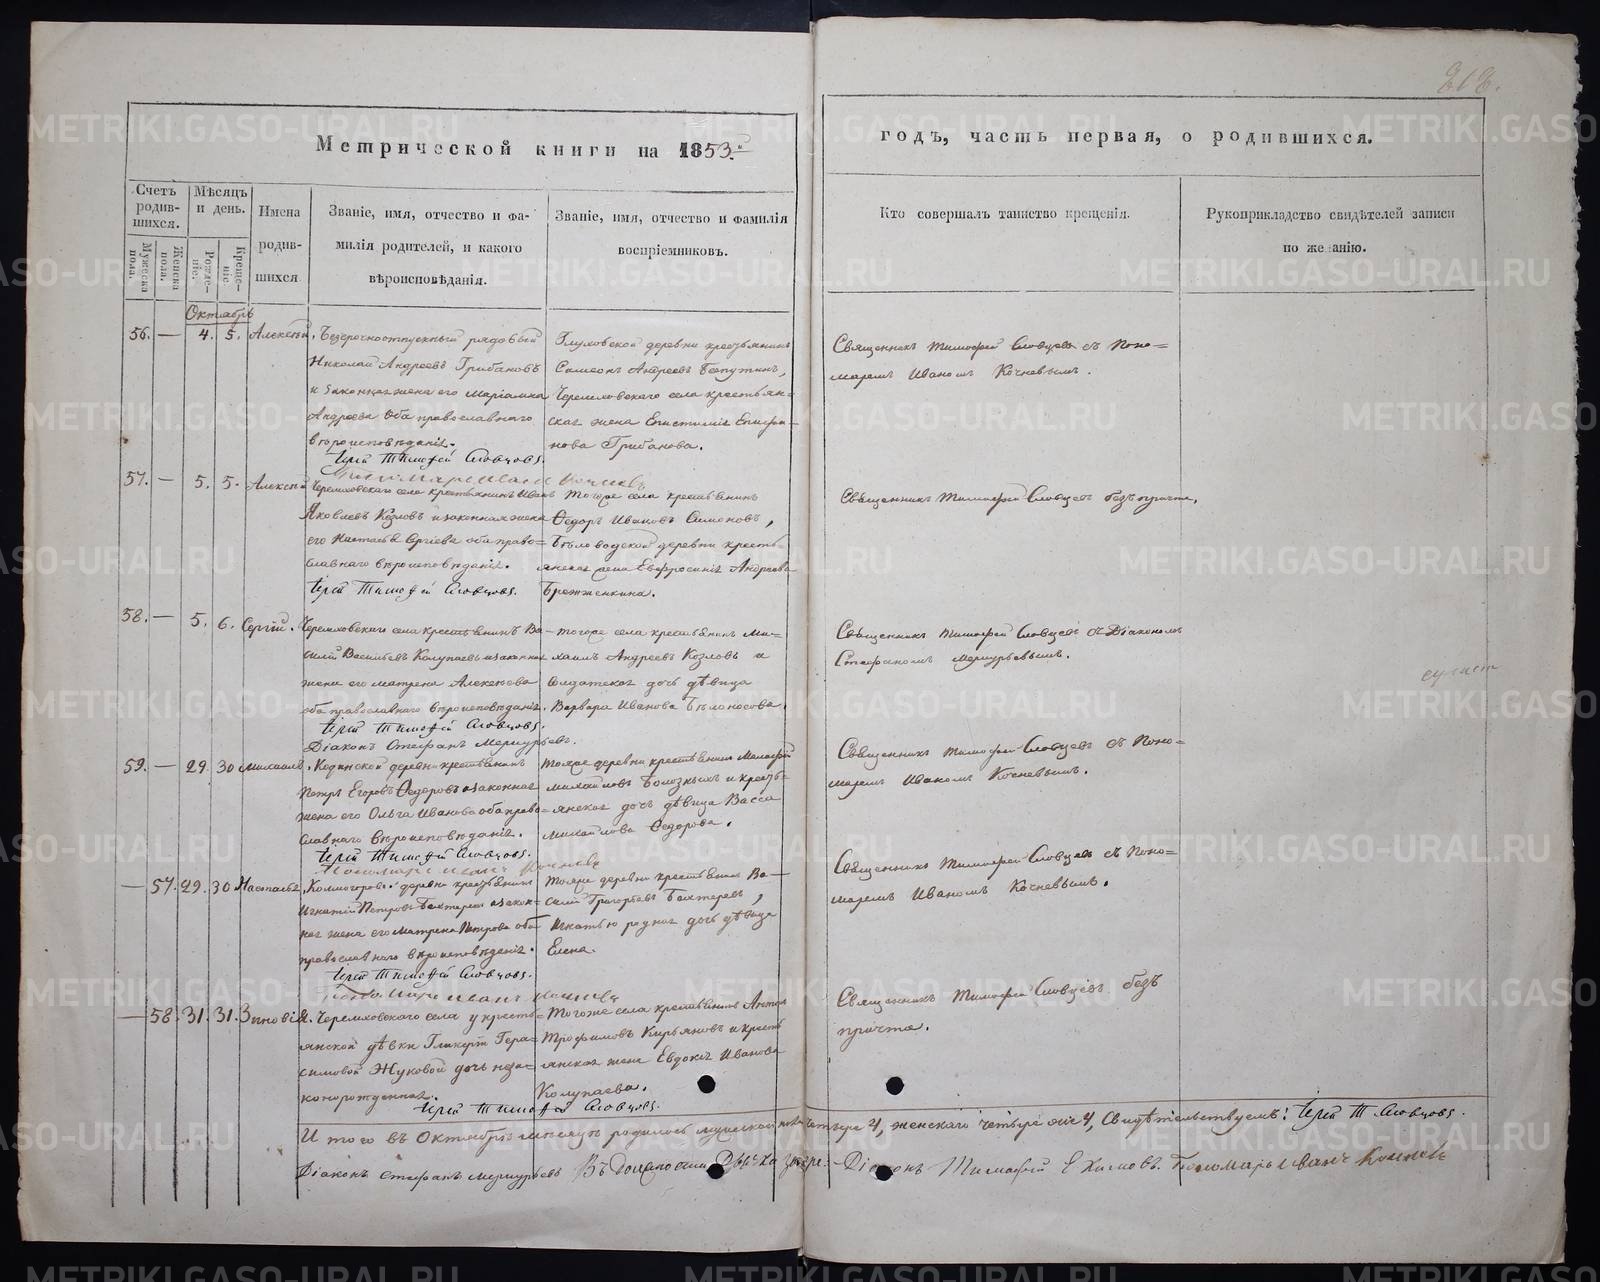 212.
Метрической книги на 1853.й
годъ, часть первая, о родившихся.
Счетъ родив-шихся.
Мужеска пола.
Женска пола.
Мѣсяцъ и день.
Рожде-ніе.
Креще-ніе
Имена родив-шихся
Званіе, имя, отчество и фа-
милія родителей, и какого
вѣроисповѣданія.
Званіе, имя, отчество и фамилія
воспріемниковъ.
Кто совершалъ таинство крещенія.
Рукоприкладство свидѣтелей записи
по желанію.
Октябрь
56. — 4. 5. Алексѣй.
Безсрочноотпускный рядовый
Николай Андреевъ Грибановъ
и законная жена его Маріамна
Андреева оба православнаго
вѣроисповѣданія.
Іерей Тимофей Словцовъ.
Пономарь Иванъ Кочневъ
Глуховской деревни крестьянинъ
Симеонъ Андреевъ
Черемховскаго села крестьян-
ская жена Епистимія Епифа-
нова Грибанова.
Священникъ Тимофей Словцевъ съ Поно=
маремъ Иваномъ Кочневымъ.
57. — 5. 5. Алексѣй
Черемховскаго села крестьянинъ Иванъ
Яковлевъ Козловъ и законная жена
его Настасья Сергіева оба право=
славнаго вѣроисповѣданія.
Іерей Тимофей Словцовъ.
Тогоже села крестьянинъ
Федоръ Ивановъ Симоновъ,
Бѣловодской деревни кресть-
янская жена Евфросинія Андреева
Священникъ Тимофей Словцевъ безъ причта.
58. — 5. 6. Сергій.
Черемховскаго села крестьянинъ Ва-
силій Васильевъ Колупаевъ и законная
жена его Матрена Алексѣева
оба православнаго вѣроисповѣданія.
Іерей Тимофей Словцовъ.
Діаконъ Стефанъ Меркурьевъ.
тогоже села крестьянинъ Ми-
хаилъ Андреевъ Козловъ и
Солдатская дочь дѣвица
Варвара Иванова Бѣлоносова.
Священникъ Тимофей Словцевъ съ Діакономъ
Стефаномъ Меркурьевымъ.
59. — 29. 30 Михаилъ.
Кодинской деревни крестьянинъ
Петръ Егоровъ Федоровъ и законная
жена его Ольга Иванова оба право=
славнаго вѣроисповѣданія.
Іерей Тимофей Словцовъ.
Пономарь Иванъ Кочневъ
Тояже деревни крестьянинъ
Михайловъ и кресть-
янская дочь дѣвица Васса
Михайлова Федорова.
Священникъ Тимофей Словцевъ съ Поно-
маремъ Иваномъ Кочневымъ.
— 57. 29. 30 Настасья
Колмогоровой деревни крестьянинъ
Игнатій Петровъ Бахтеревъ и закон-
ная жена его Матрена Петрова оба
православнаго вѣроисповѣданія.
Іерей Тимофей Словцовъ.
Пономарь Иванъ Кочневъ
Тояже деревни крестьянинъ Ва-
силій Григорьевъ Бахтеревъ,
Игнатью родная дочь дѣвица
Елена.
Священникъ Тимофей Словцевъ съ Поно=
маремъ Иваномъ Кочневымъ.
— 58. 31. 31. Зиновія.
Черемховскаго села у кресть-
янской дѣвки Гликеріи Гера-
симовой Жуковой дочь неза-
коннорожденная.
Іерей Тимофей Словцовъ.
Тогоже села крестьянинъ Антонъ
Трофимовъ Кирьяновъ и кресть
янская жена Евдокія Иванова
Колупаева.
Священникъ Тимофей Словцевъ безъ
причта.
Итого въ Октябрѣ мѣсяцѣ родилось мужеска пола четыре 4, женскаго четыре 4, Свидѣтельствуемъ: Іерей Т. Словцовъ.
Діаконъ Стефанъ Меркурьевъ Въ должности Діаконъ Тимофей Ехимовъ. Пономарь Иванъ Кочневъ